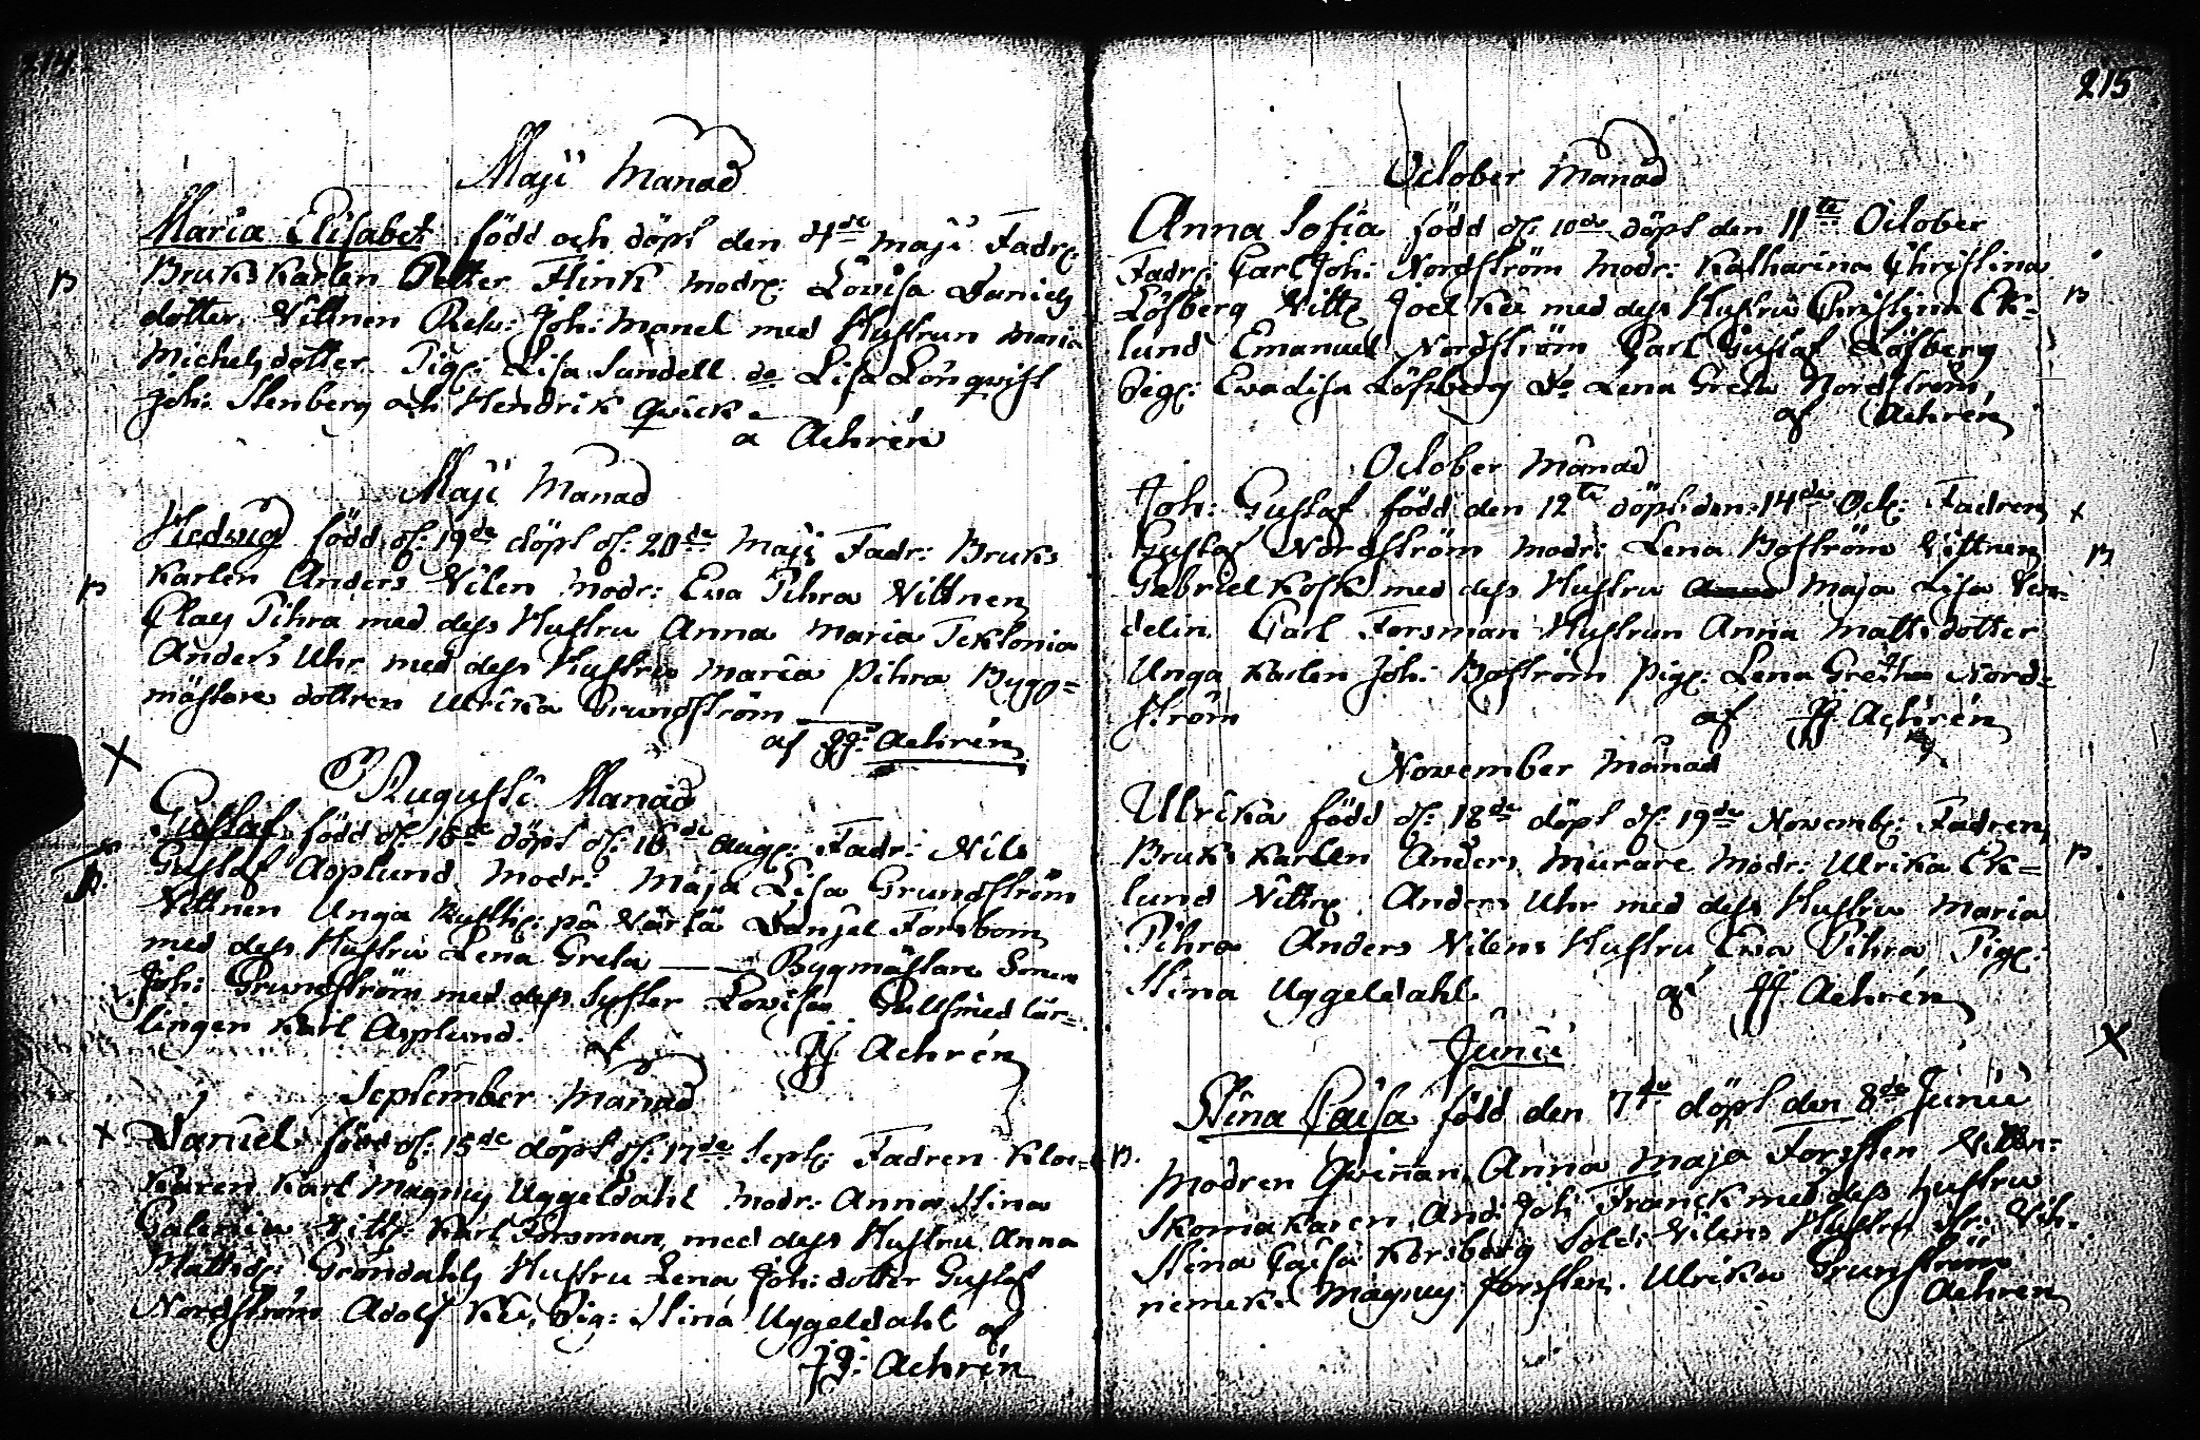 214
Maji Månad
Maria Elisabet född och döpt den 4de Maji Fadr:
p Bruks Karlen Petter Flink modr: Lovisa Daniels
dotter. Vittnen Rek: Joh: Manel med Hustrun Maria
Michelsdotter Pig: Lisa Sundell do Lisa Lönqvist
Joh: Stenberg och Hendrik Qvick
a Aehrén
Maji Månad
Hedvig född d: 19de döpt d: 20de Maji Fadr: Bruks
p Karlen Anders Vilen Modr: Eva Pihra Vittnen
Clas Pihra med dess Hustru Anna Maria Teklonia
Anders Uhr med dess Hustru Maria Pihra Bygg=
mästare dottren Ulrika Grundström
af JJ: Aehrén
X
Augusti Månad
Gustaf född d: 15de döpt d: 16de Aug: Fadr: Nils
p. Gustaf Asplund Modr: Maja Lisa Grundström
Vittnen Unga på Värtä Danjel Forsbom
med dess Hustru Lena Greta — Bygmästare Sonen
Joh: Grundström med dess Syster Lovisa Gullsmed lär=
lingen Karl Asplund.
af JJ. Aehrén
September Månad
x Daniel född d: 15de döpt d: 17de Sept: Fadren Kloc=
Karen Karl Magnus Uggeldahl Modr: Anna Stina
Galenia Vittn: Karl Forsman med dess Hustru Anna
Mattsdr: Gröndahls Hustru Lena Joh: dotter Gustaf
Nordström Adolf Pig: Stina Uggeldahl af
JJ: Aehrén
215
October Månad
Anna Sofia född d: 10de döpt den 11te October
Fadr: Carl Joh: Nordström Modr: Katharina Christina
Löfberg Vittn Joel med dess Hustru Christina Ek= p
lund Emanuel Nordström Carl Gustaf Löfberg
Pig: Evadisa Löfberg Do Lena Greta Nordström
af Aehrén
October Månad
Joh: Gustaf född den 12te döpt den 14de Oct: Fadren x
Gustaf Nordström Modr: Lena Boström Vittnen p
Gabriel Kosk med dess Hustru Maja Lisa
delin Carl Forsman Hustrun Anna Mattsdotter
Unga Karlen Joh: Boström Pig: Lena Gretha Nord=
ström af JJ Aehrén
November Månad
Ulrika född d: 18de döpt d: 19de Novemb: Fadren
Bruks Karlen Anders Murare Modr: Ulrika Ek= p.
lund Vittn: Anders Uhr med dess Hustru Maria
Pihra Anders Vilens Hustru Eva Pihra Pig:
Stina Uggeldahl af JJ Aehrén
Junii
X
Stina Caisa född den 7de döpt den 8de Junii
p. Modren Qvinnan Anna Maja Forssten Vittn:
Skomakaren And: Joh: Franck med dess Hustru
Stina Caisa Korsberg Sold: Vilens Hustru
Magnus Forssten. Ulrika Grunström
Aehren